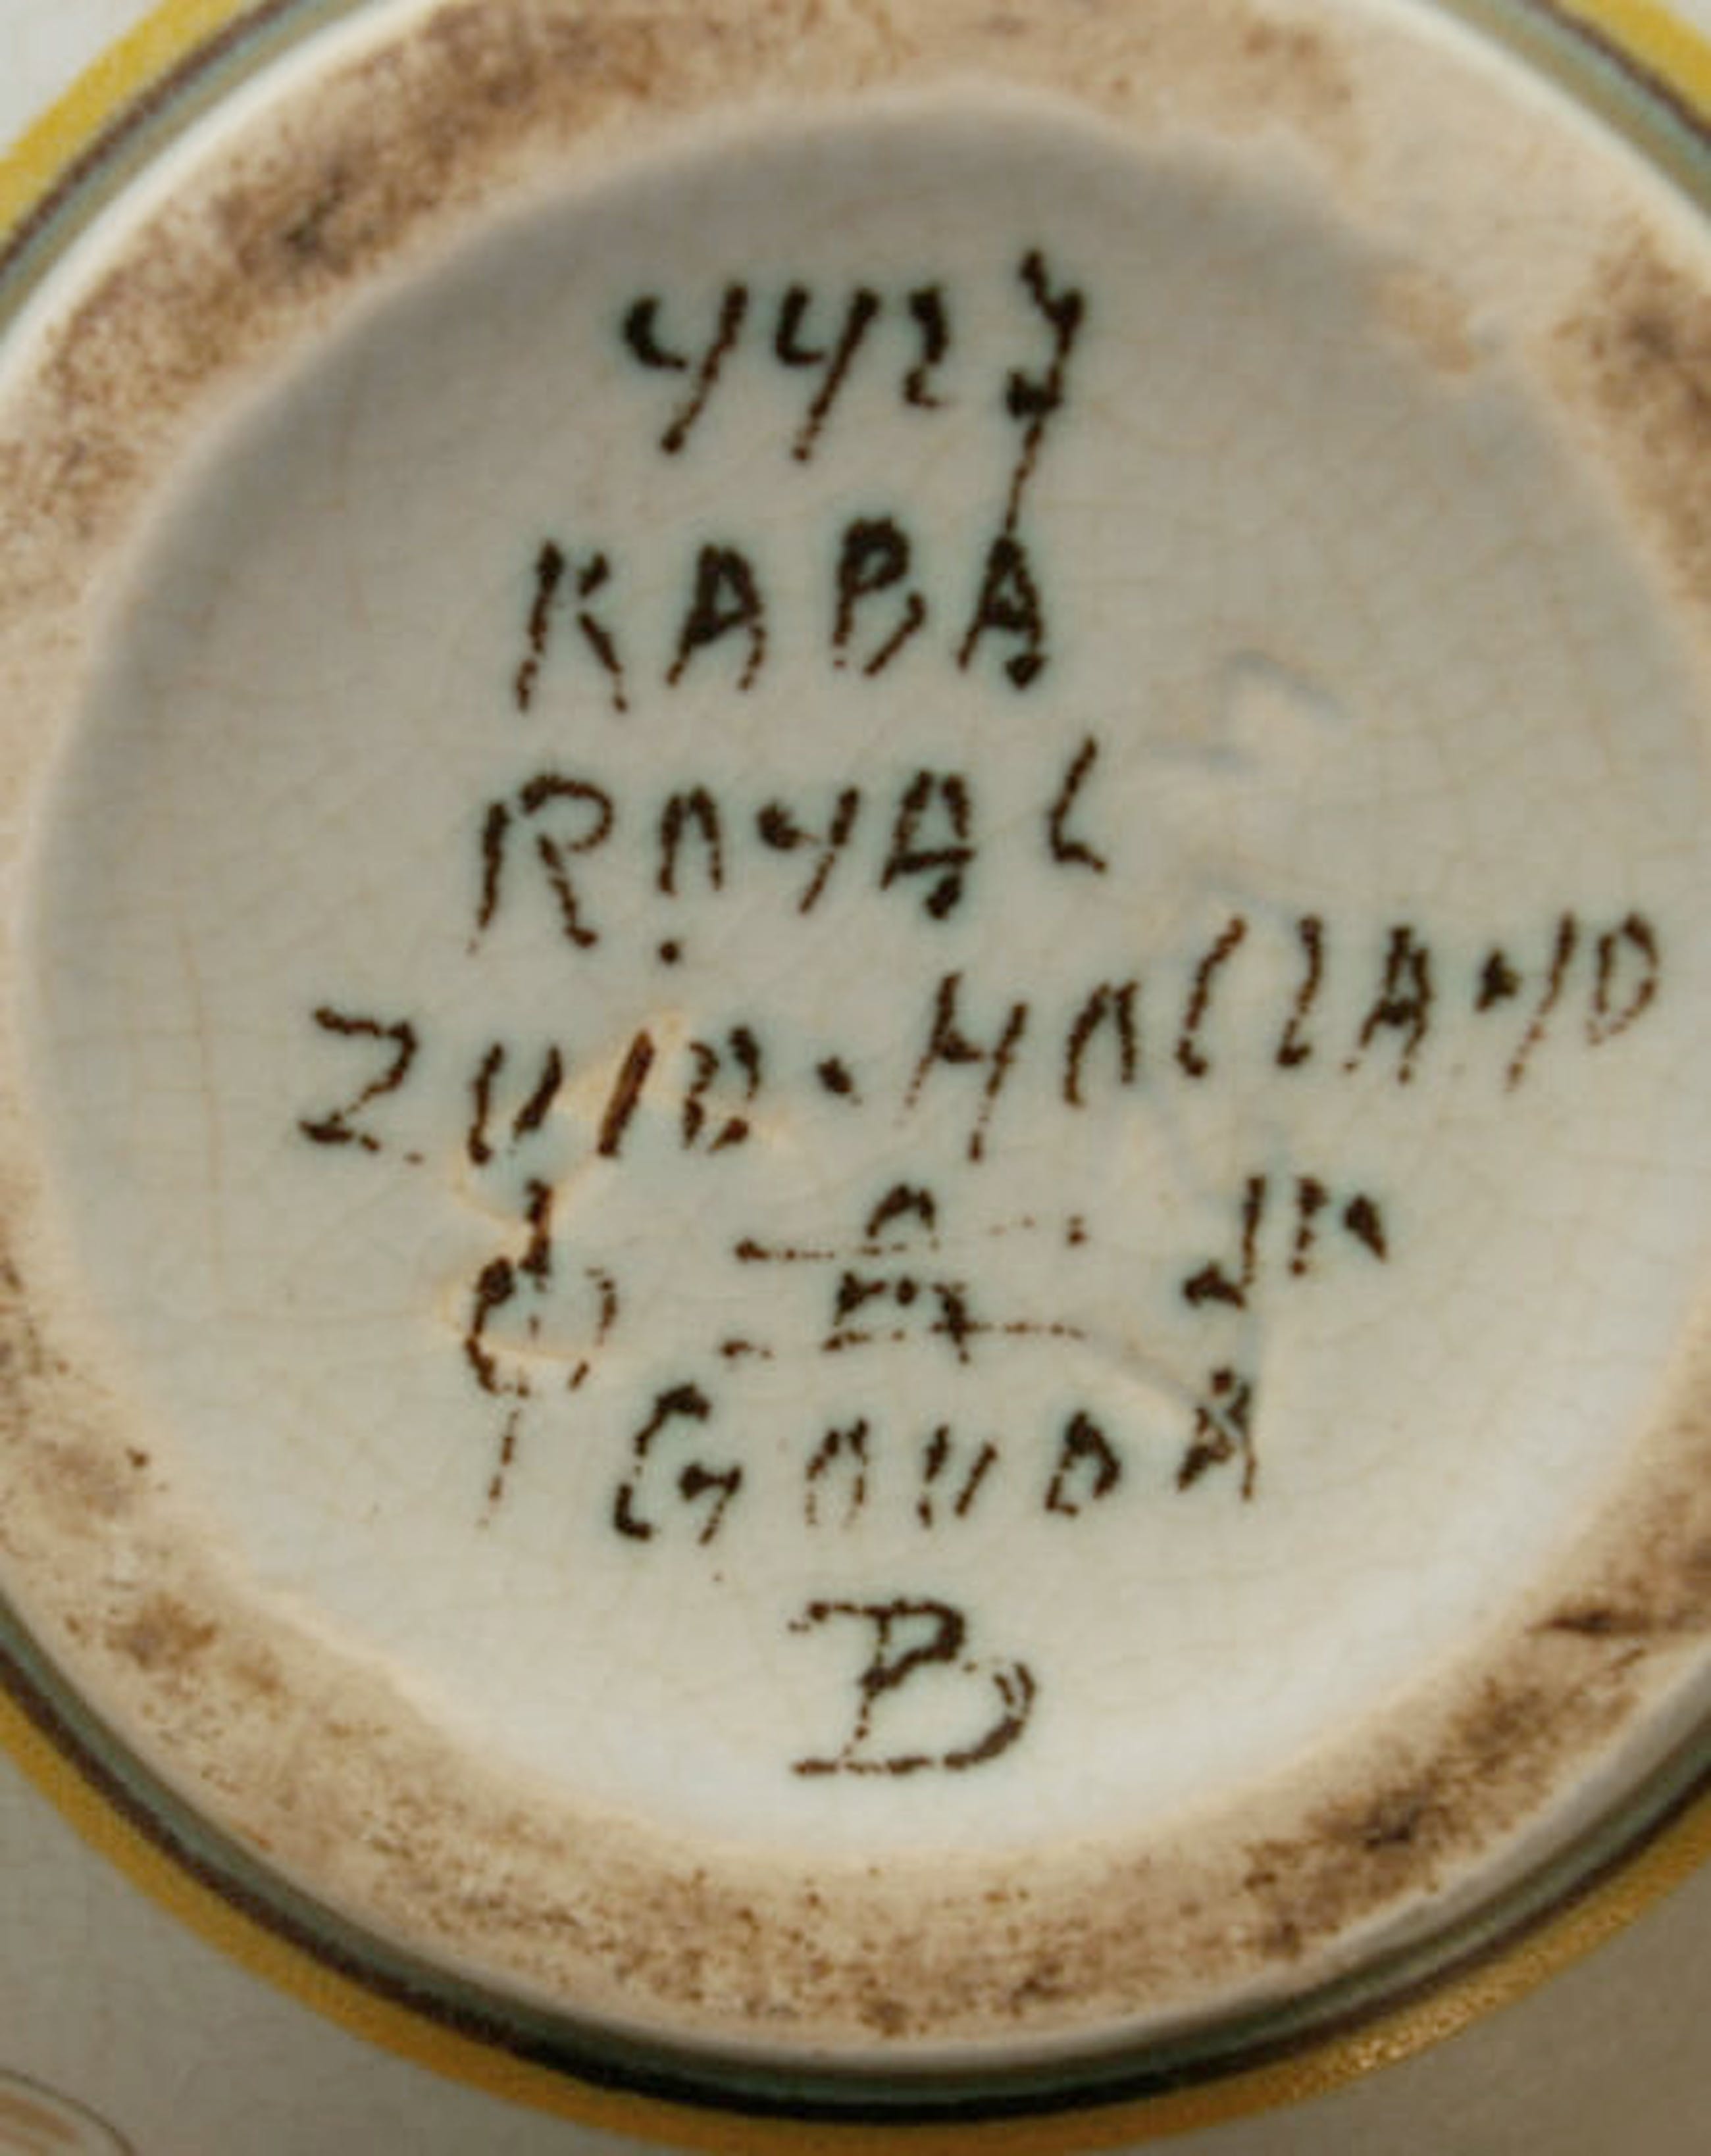 4427
KABA
ROYAL
ZUID·HOLLAND
GOUDA
B